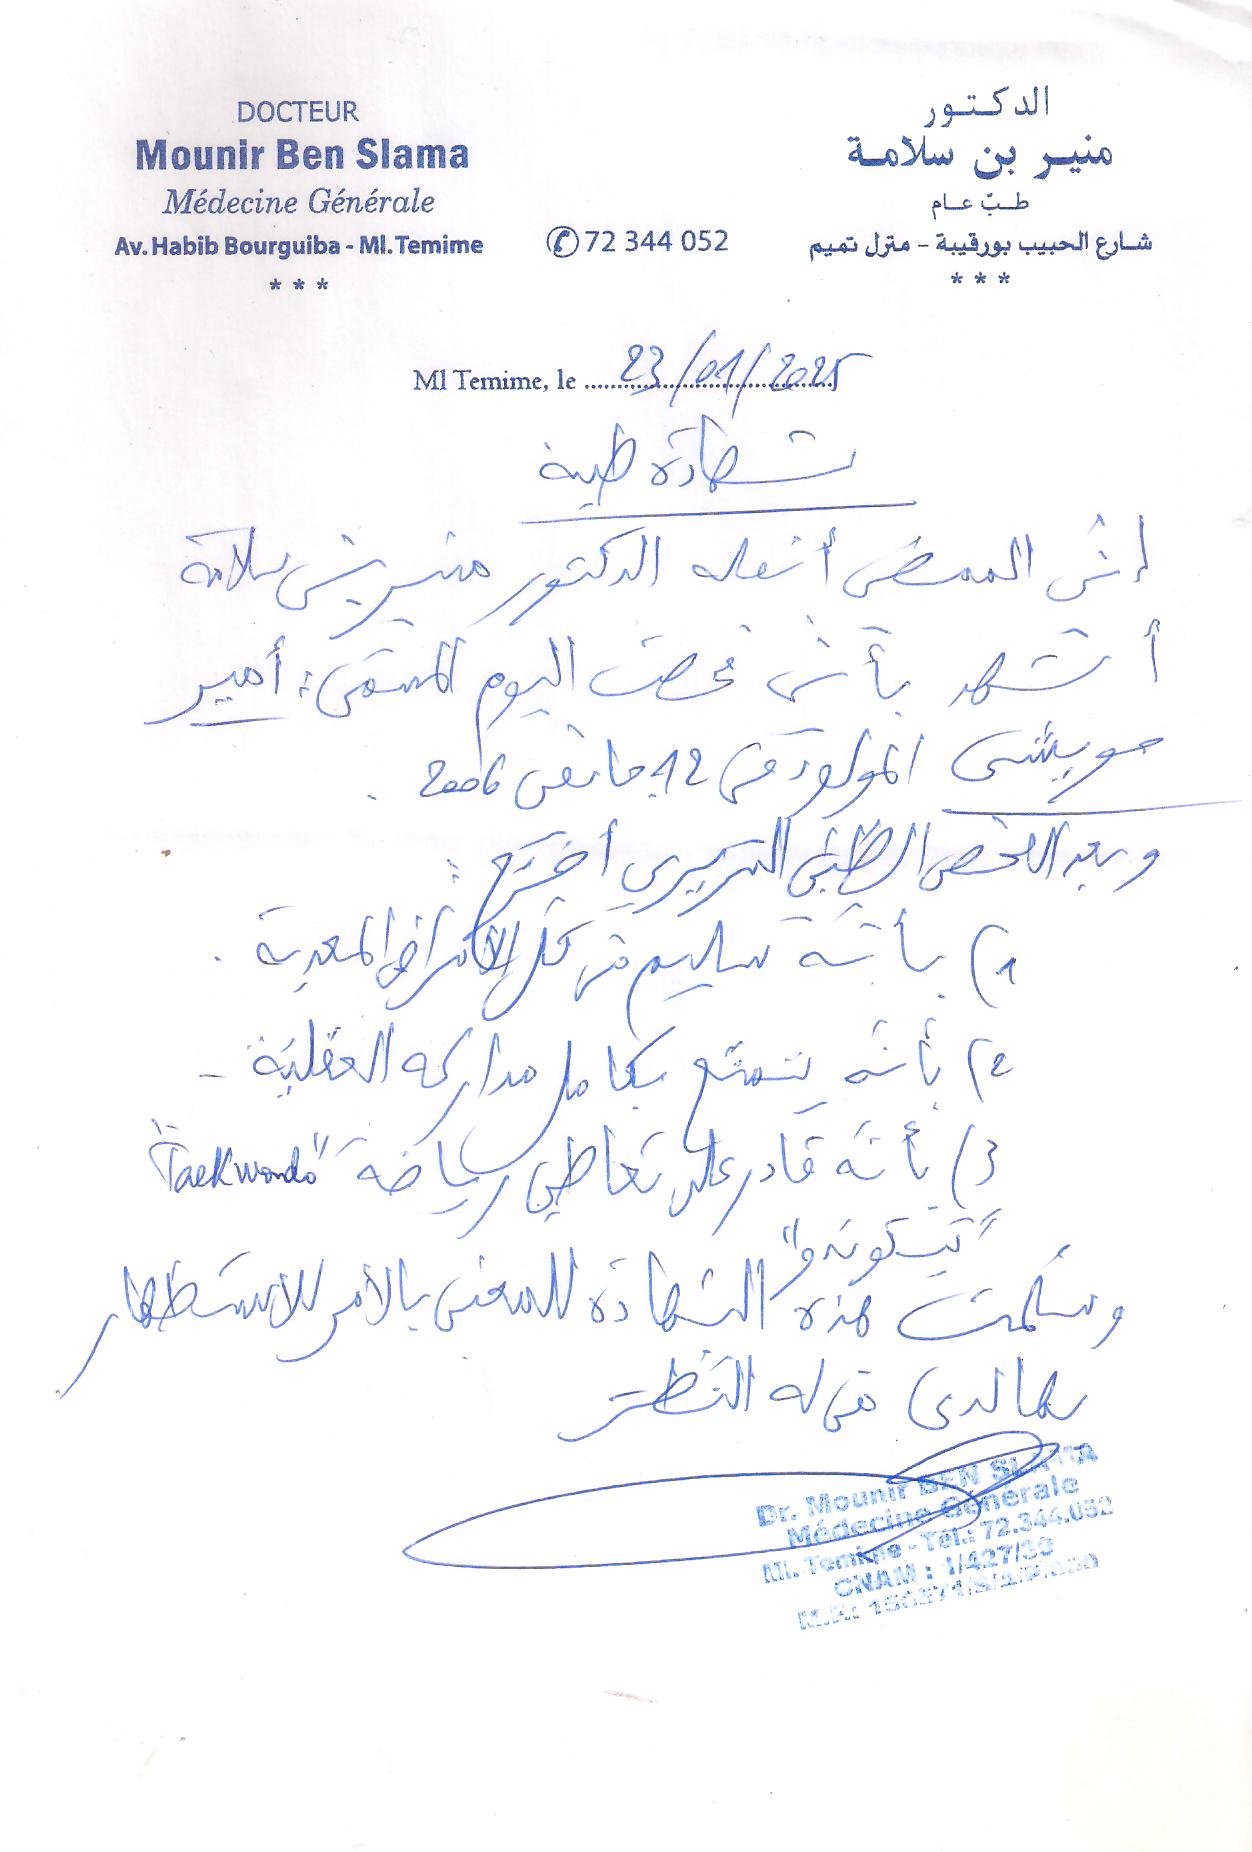 DOCTEUR
Mounir Ben Slama
Médecine Générale
Av. Habib Bourguiba - Ml. Temime
* * *
72 344 052
الدكتور
منير بن سلامة
طب عام
شارع الحبيب بورقيبة - منزل تميم
* * *
Ml Temime, le 23/01/2025
شهادة طبية
إني الممضي أسفله الدكتور منير بن سلامة
أشهد بأني فحصت اليوم المسمى : أمير
المولود في 12 جانفي 2006 .
وبعد الفحص الطبي السريري أصرح :
1) بأنه سليم من كل الأمراض المعدية .
2) بأنه يتمتع بكامل مداركه العقلية -
3) بأنه قادر على تعاطي رياضة "Taekwondo"
"تيكوندو"
وسلمت هذه الشهادة للمعني بالأمر للاستظهار
بها لدى من له النظر
Dr. Mounir BEN SLAMA
Médecine Générale
Ml. Temime - Tél.: 72.344.052
CNAM : 1/427/38